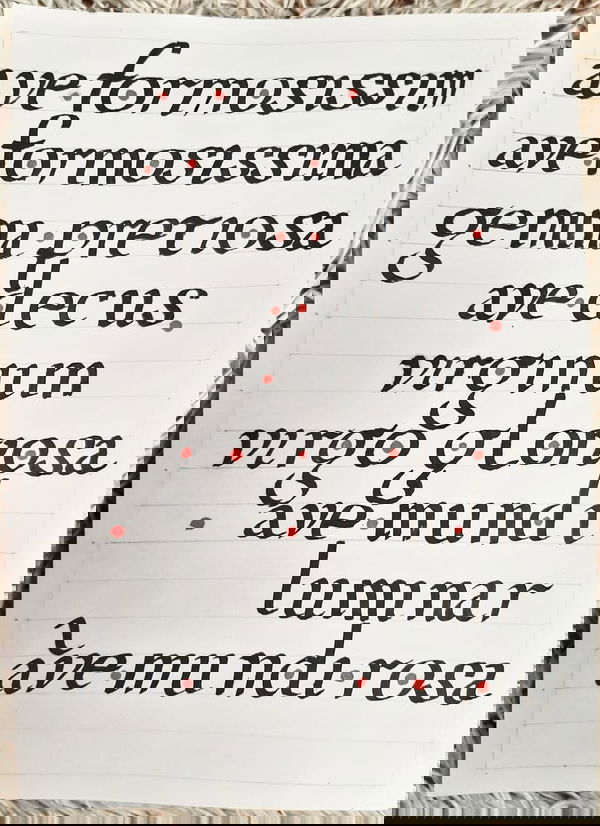 ave formosissim
ave formosissima
gemma pretiosa
ave decus
virginum
virgo gloriosa
ave mundi
luminar
ave mundi rosa